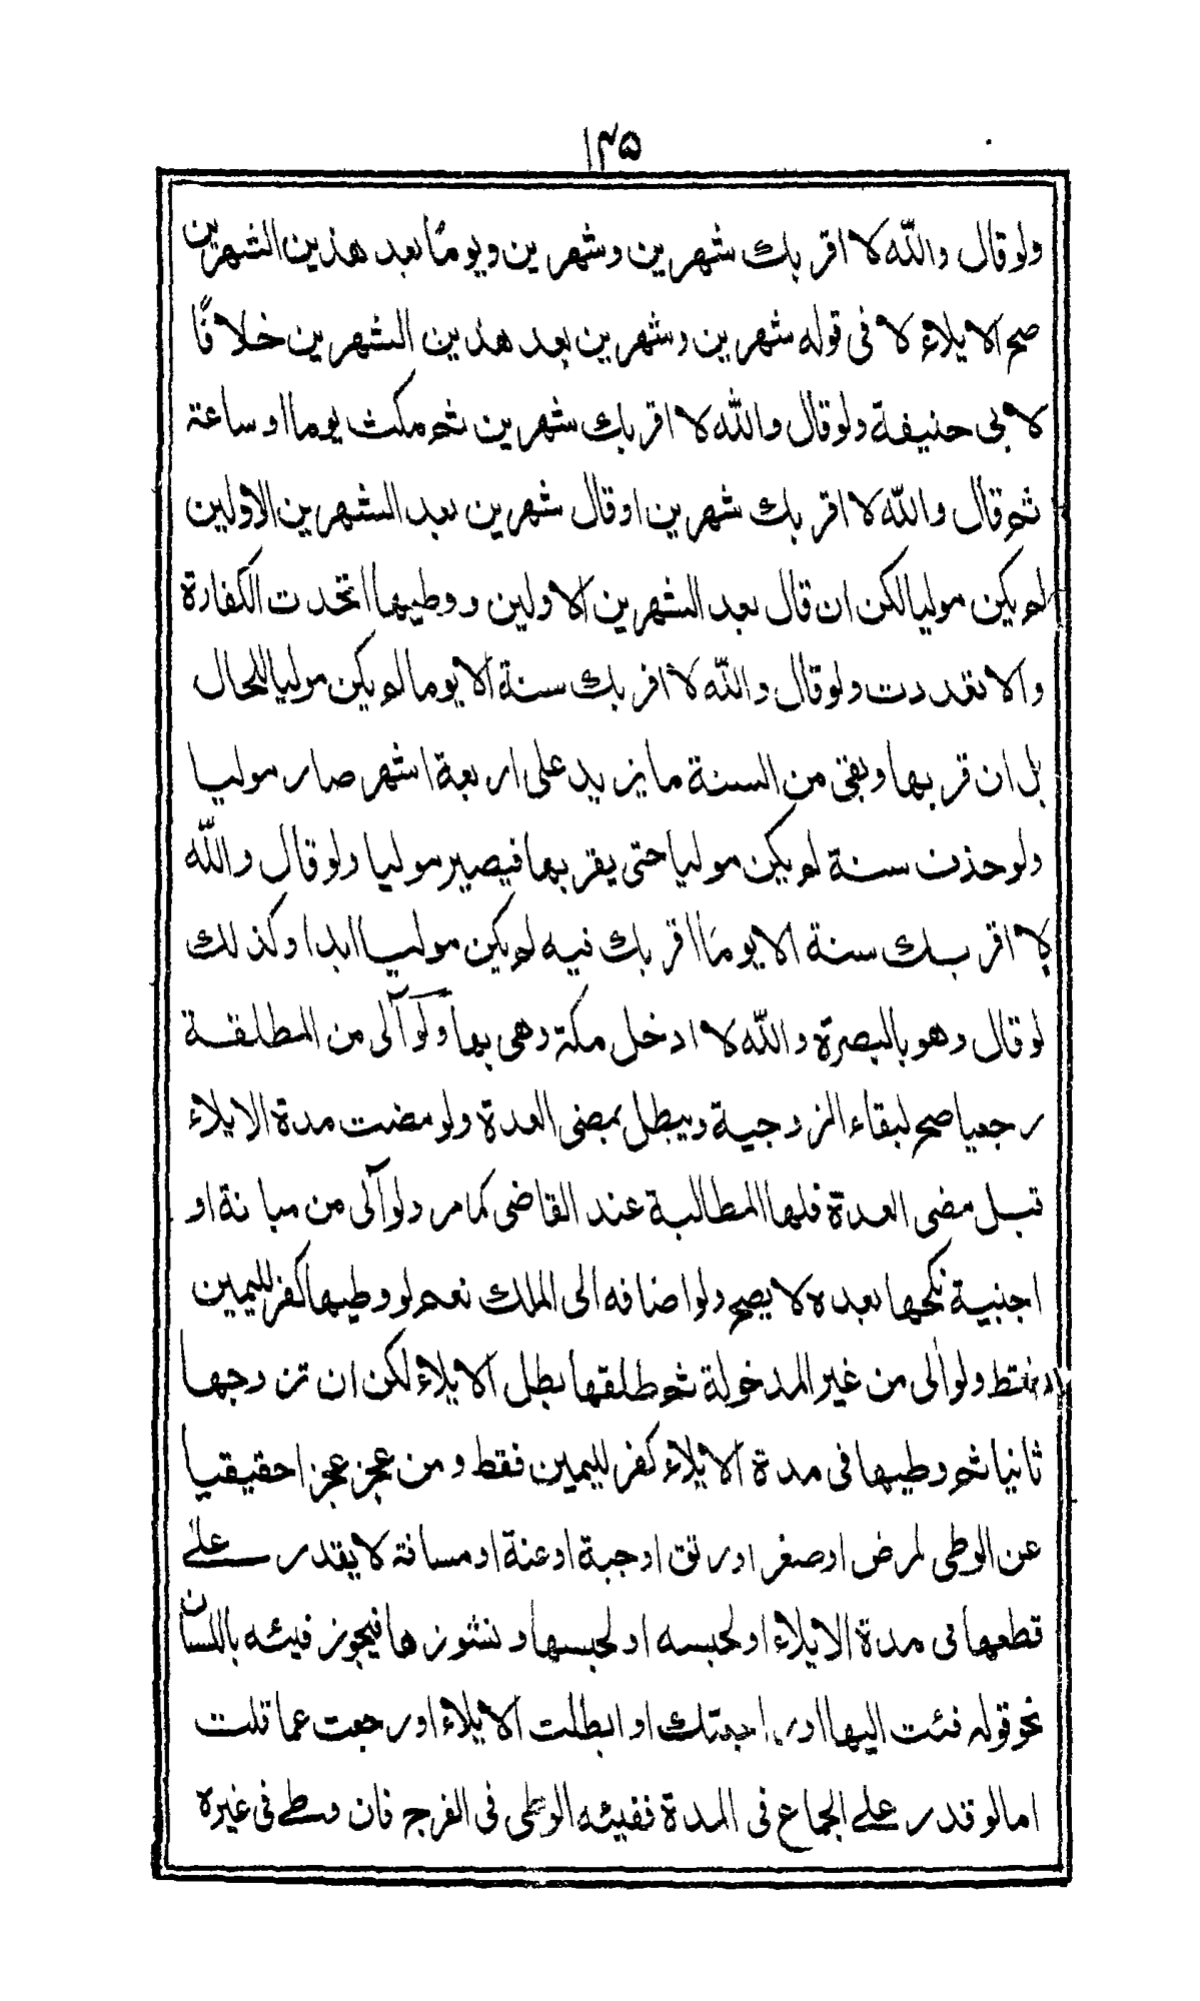 ۱۳۵
ولو قال والله لا اقربك شهرين وشهرين ويومًا بعد هذين الشهرين
صح الايلاء لا في قوله شهرين وشهرين بعد هذين الشهرين خلافًا
لابى حنيفة ولو قال والله لا اقربك شهرين ثم مكث يوما او ساعة
ثم قال والله لا اقربك شهرين او قال شهرين بعد الشهرين الاولين
لم يكن موليا لكن ان قال بعد الشهرين الاولين ووطيها اتحدت الكفارة
والا تعددت ولو قال والله لا اقربك سنة الا يوما لم يكن موليا للحال
بل ان قربها وبقى من السنة ما يزيد على اربعة اشهر صار موليا
ولو حذف سنة لم يكن موليا حتى يقربها فيصير موليا ولو قال والله
لا اقربك سنة الا يومًا اقربك فيه لم يكن موليا ابدا وكذلك
لو قال وهو بالبصرة والله لا ادخل مكة وهى بها ولو آلى من المطلقة
رجعيا صح لبقاء الزوجية ويبطل بمضى العدة ولو مضت مدة الايلاء
قبل مضى العدة فلها المطالبة عند القاضى كما مر ولو آلى من مبانة او
اجنبية نكحها بعده لا يصح ولو اضافه الى الملك نعم لو وطيها كفر لليمين
فقط ولو آلى من غير المدخولة ثم طلقها بطل الايلاء لكن ان تزوجها
ثانيا ثم وطيها فى مدة الايلاء كفر لليمين فقط ومن عجز عجزا حقيقيا
عن الوطى لمرض او صغر او رتق او جبة او عنة او مسافة لا يقدر على
قطعها فى مدة الايلاء او لحبسه او لحبسها ونشوزها فيجوز فيئه باللسان
نحو قوله فئت اليها او راجعتك او ابطلت الايلاء او رجعت عما قلت
اما لو قدر على الجماع فى المدة ففيئه الوطى فى الفرج فان وطى فى غيره